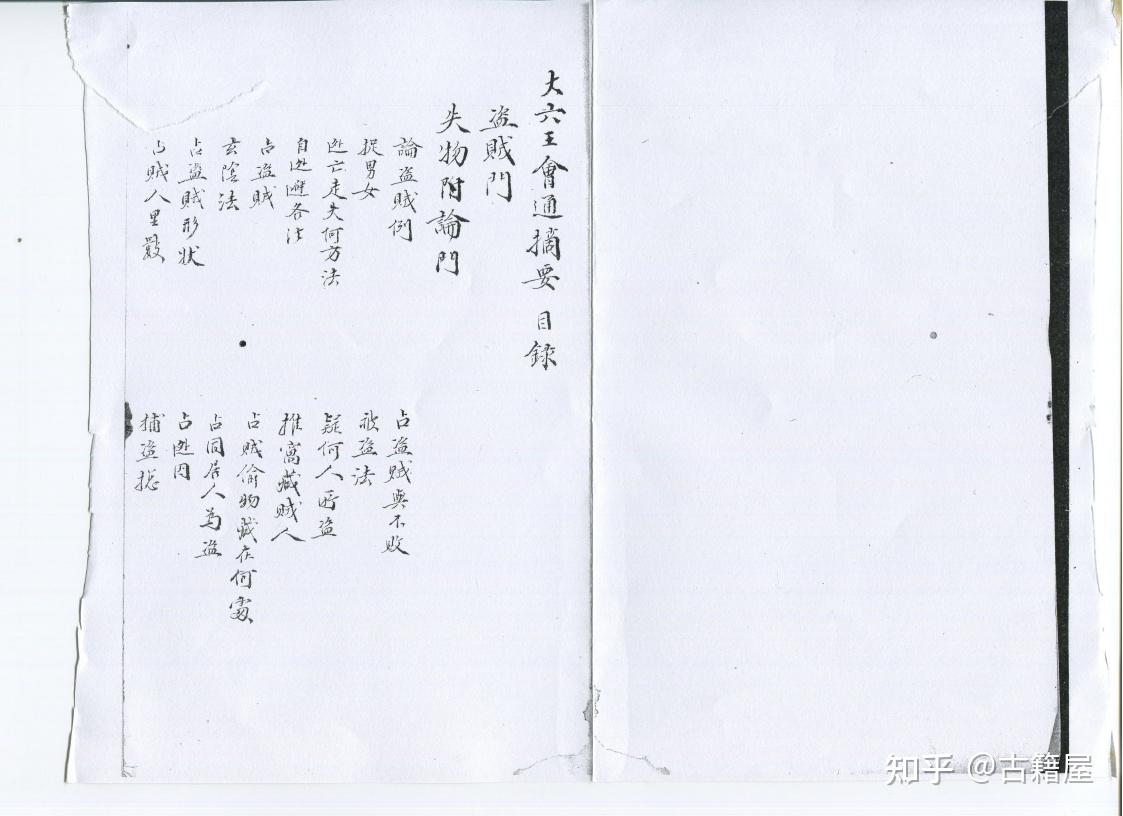 大六壬會通摘要 目錄
盜賊門
失物附論門
論盜賊例
占盜賊與不敗
捉男女
被盜法
逃亡走失何方法
疑何人所盜
自逃避各法
推窩藏賊人
占盜賊
占賊偷物藏在何處
玄陰法
占同居人為盜
占盜賊形狀
占逃
占賊人里數
捕盜
知乎 @古籍屋